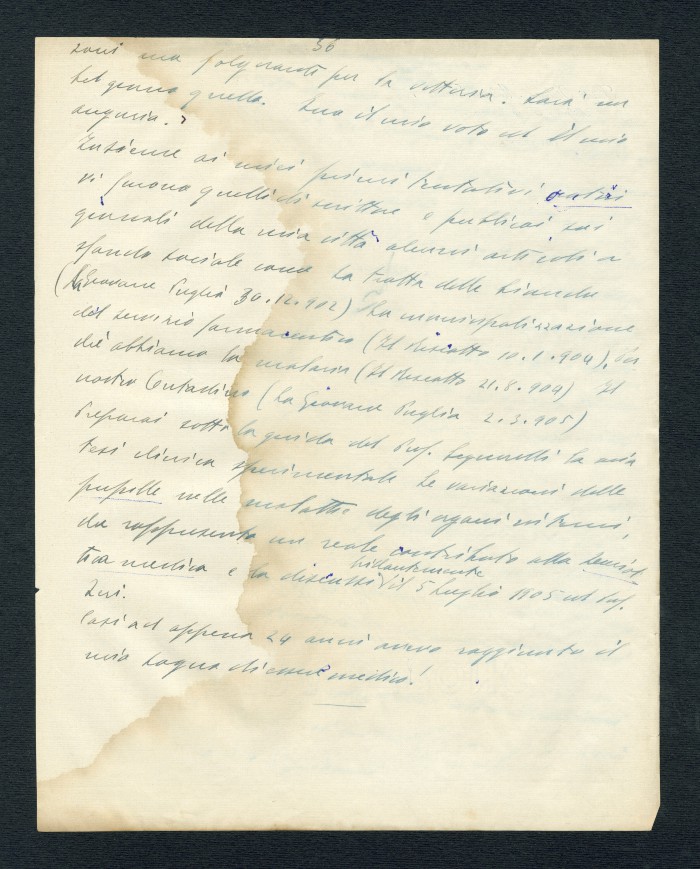 56
zoni ma folgorante per la vittoria. Sarà un
bel giorno quello. Era il mio voto ed il mio
augurio.
Insieme ai miei primi tentativi oratori
vi furono quelli di scrittore e pubblicai sui
giornali della mia città alcuni articoli a
sfondo sociale come La tratta delle bianche
(La Giovane Puglia 30.12.902) La municipalizzazione
del servizio farmaceutico (Il Risciatto 10.1.904),
che abbiamo la malaria (Il Risciatto 21.8.904) Il
nostro Contadino (La Giovane Puglia 2.3.905)
Preparai sotto la guida del Prof. la mia
tesi clinica sperimentale Le variazioni delle
pupille nelle malattie degli organi interni,
da rappresentare un reale contributo alla semeiot-
tica medica e la discussi brillantemente il 5 luglio 1905 col Prof.
Zeri.
Così ad appena 24 anni avevo raggiunto il
mio sogno di essere medico!